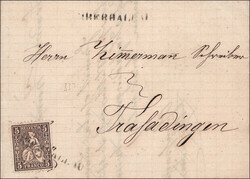 OBERHALLAU
Herrn Zimmerman Schreiber
Trasadingen